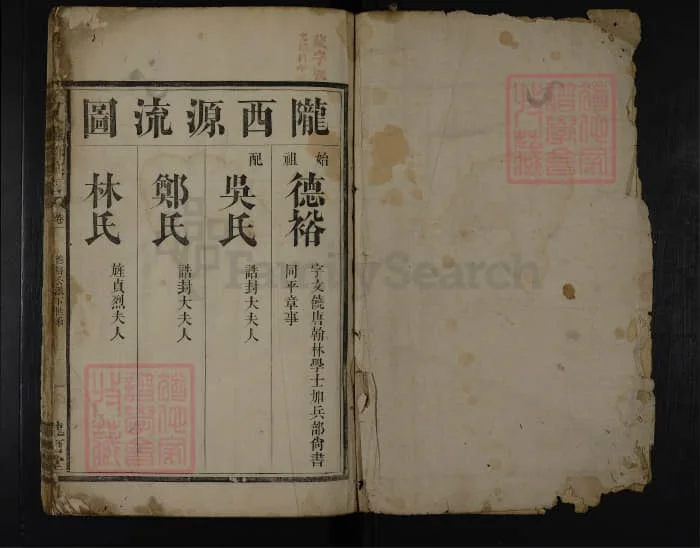 隴西源流圖
始祖
德裕
字文饒唐翰林學士加兵部尙書
同平章事
配
吳氏
誥封大夫人
鄭氏
誥封大夫人
林氏
旌貞烈夫人
卷一
FamilySearch